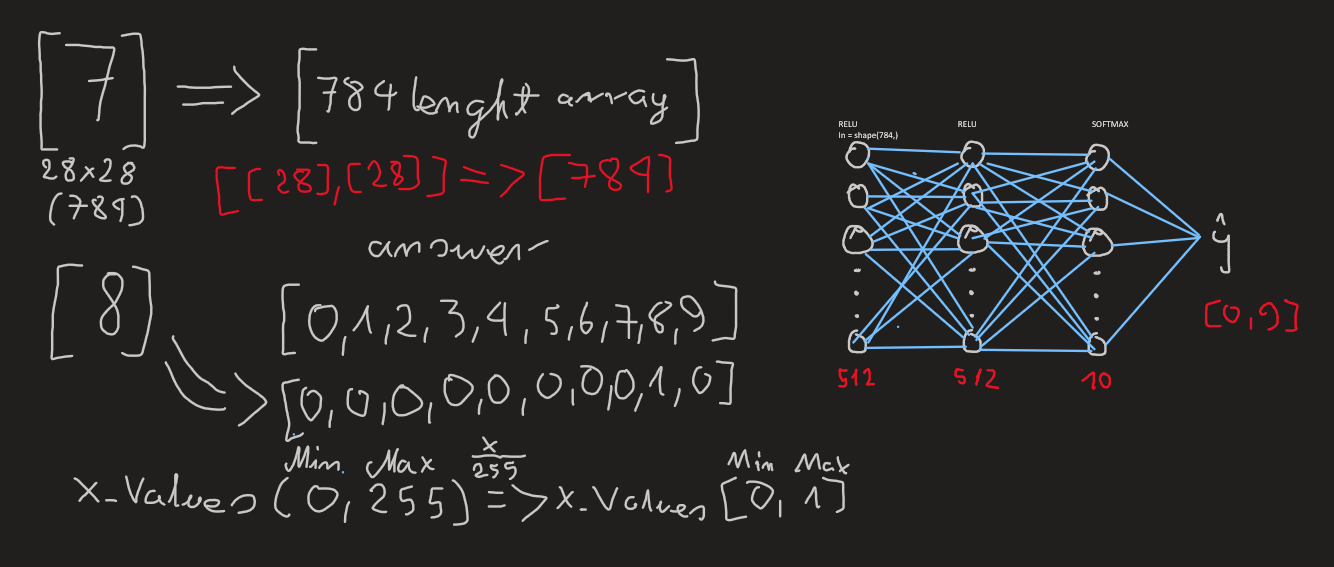 [7] => [784 lenght array]
28×28
(784)
[[28],[28]] => [784]
answer
[8]
[0,1,2,3,4,5,6,7,8,9]
[0,0,0,0,0,0,0,0,1,0]
Min. Max x/255 Min Max
X_Values (0,255) => X_Values [0,1]
RELU
In = shape(784,)
RELU
SOFTMAX
ŷ
[0,9]
512
512
10